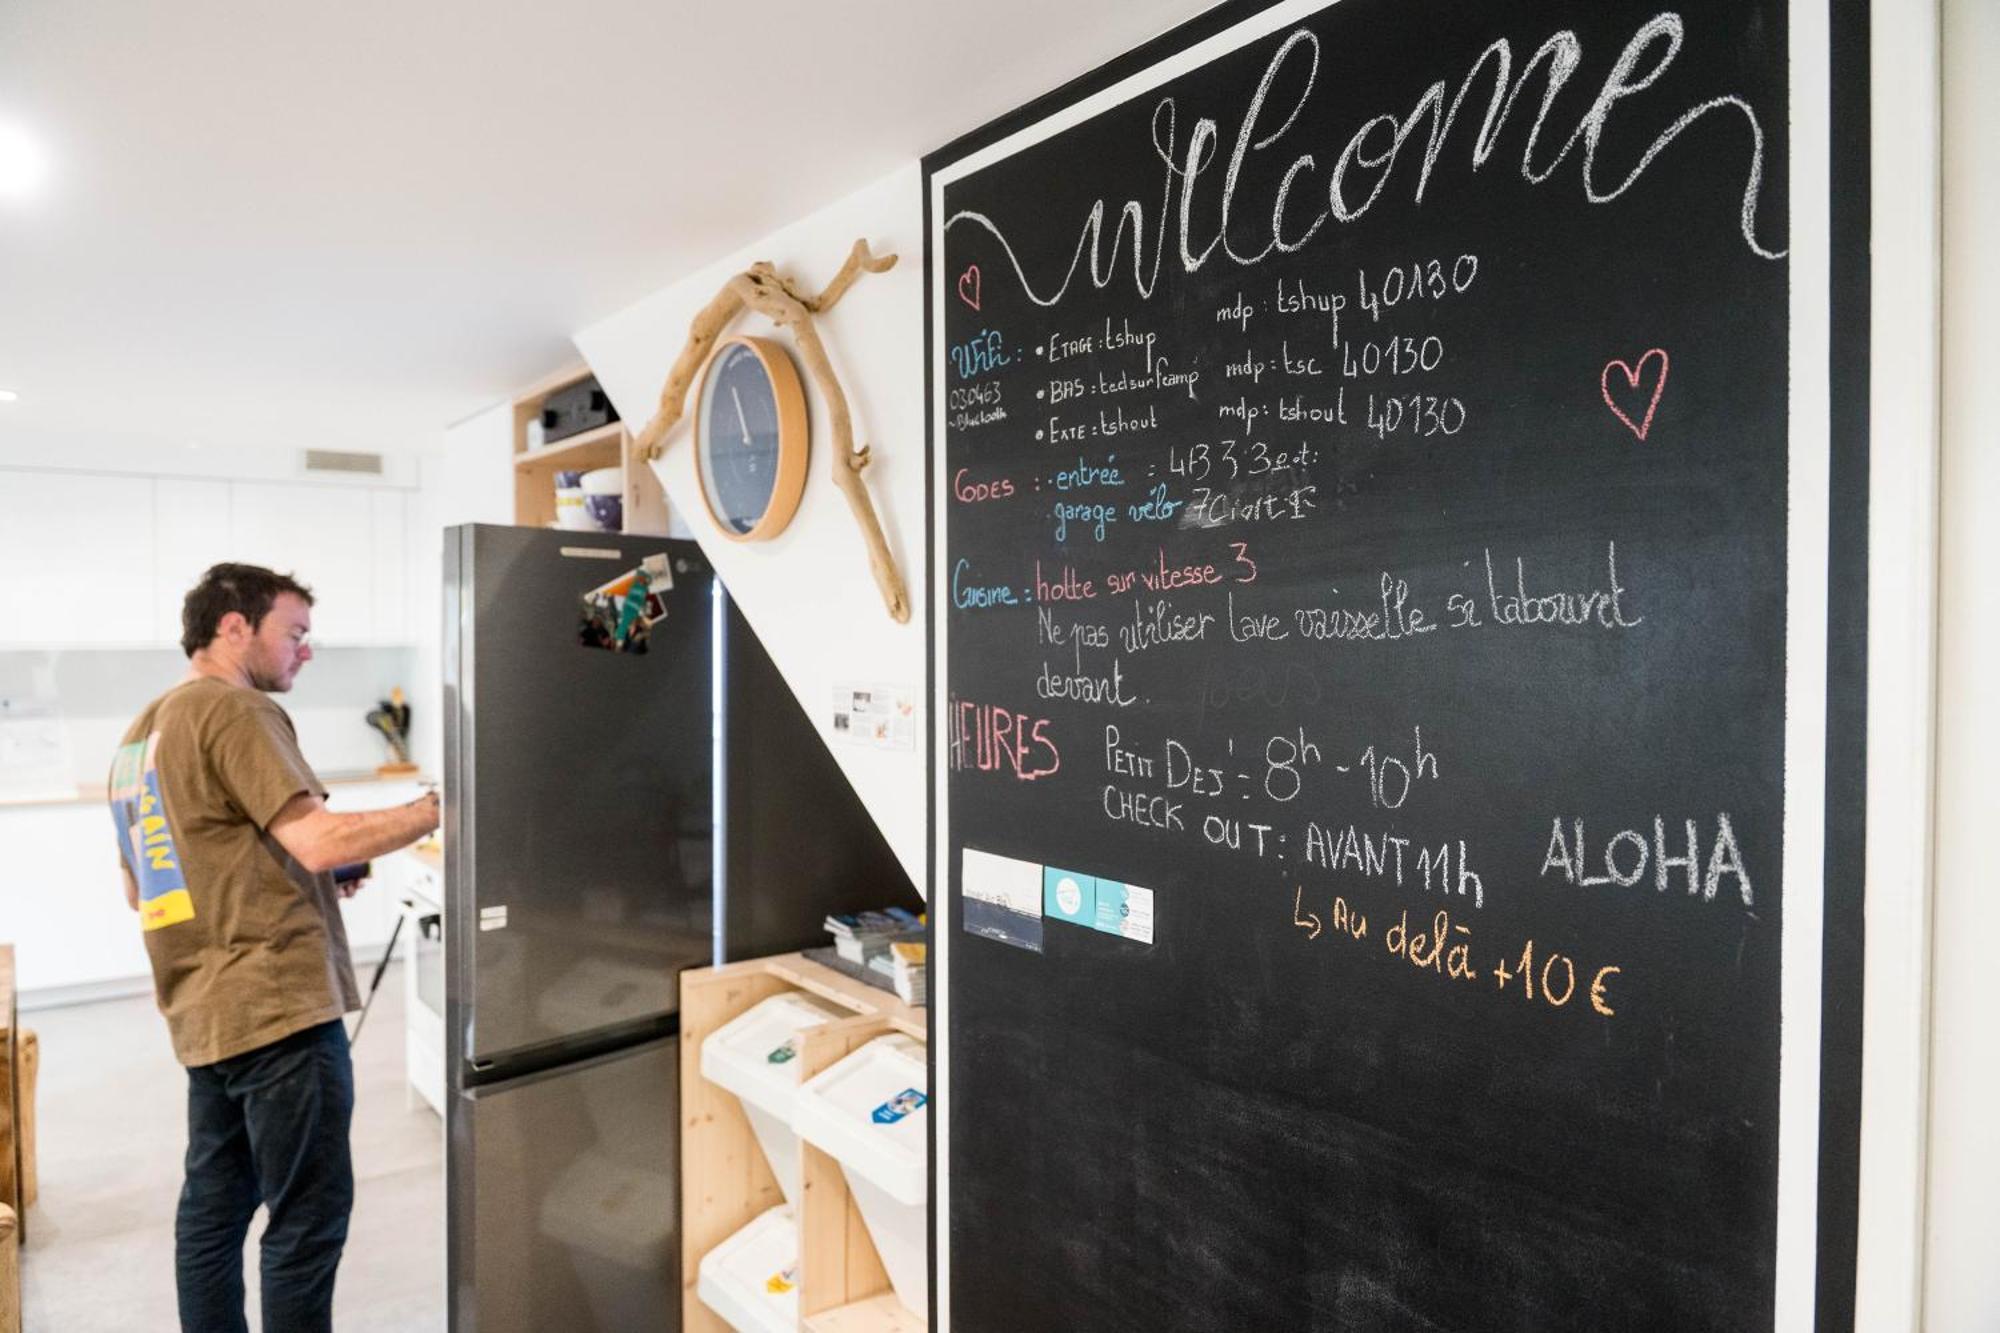 welcome
Wifi : • ETAGE : tshup mdp : tshup 40130
030463 • BAS : tedsurfcamp mdp : tsc 40130
~Bluetooth • EXTE : tshout mdp : tshout 40130
CODES : • entrée :
• garage vélo
Cuisine : hotte sur vitesse 3
Ne pas utiliser lave vaisselle si tabouret
devant.
HEURES PETIT DEJ : 8h - 10h
CHECK OUT : AVANT 11h
ALOHA
↳ Au delà +10€
AGAIN
LG